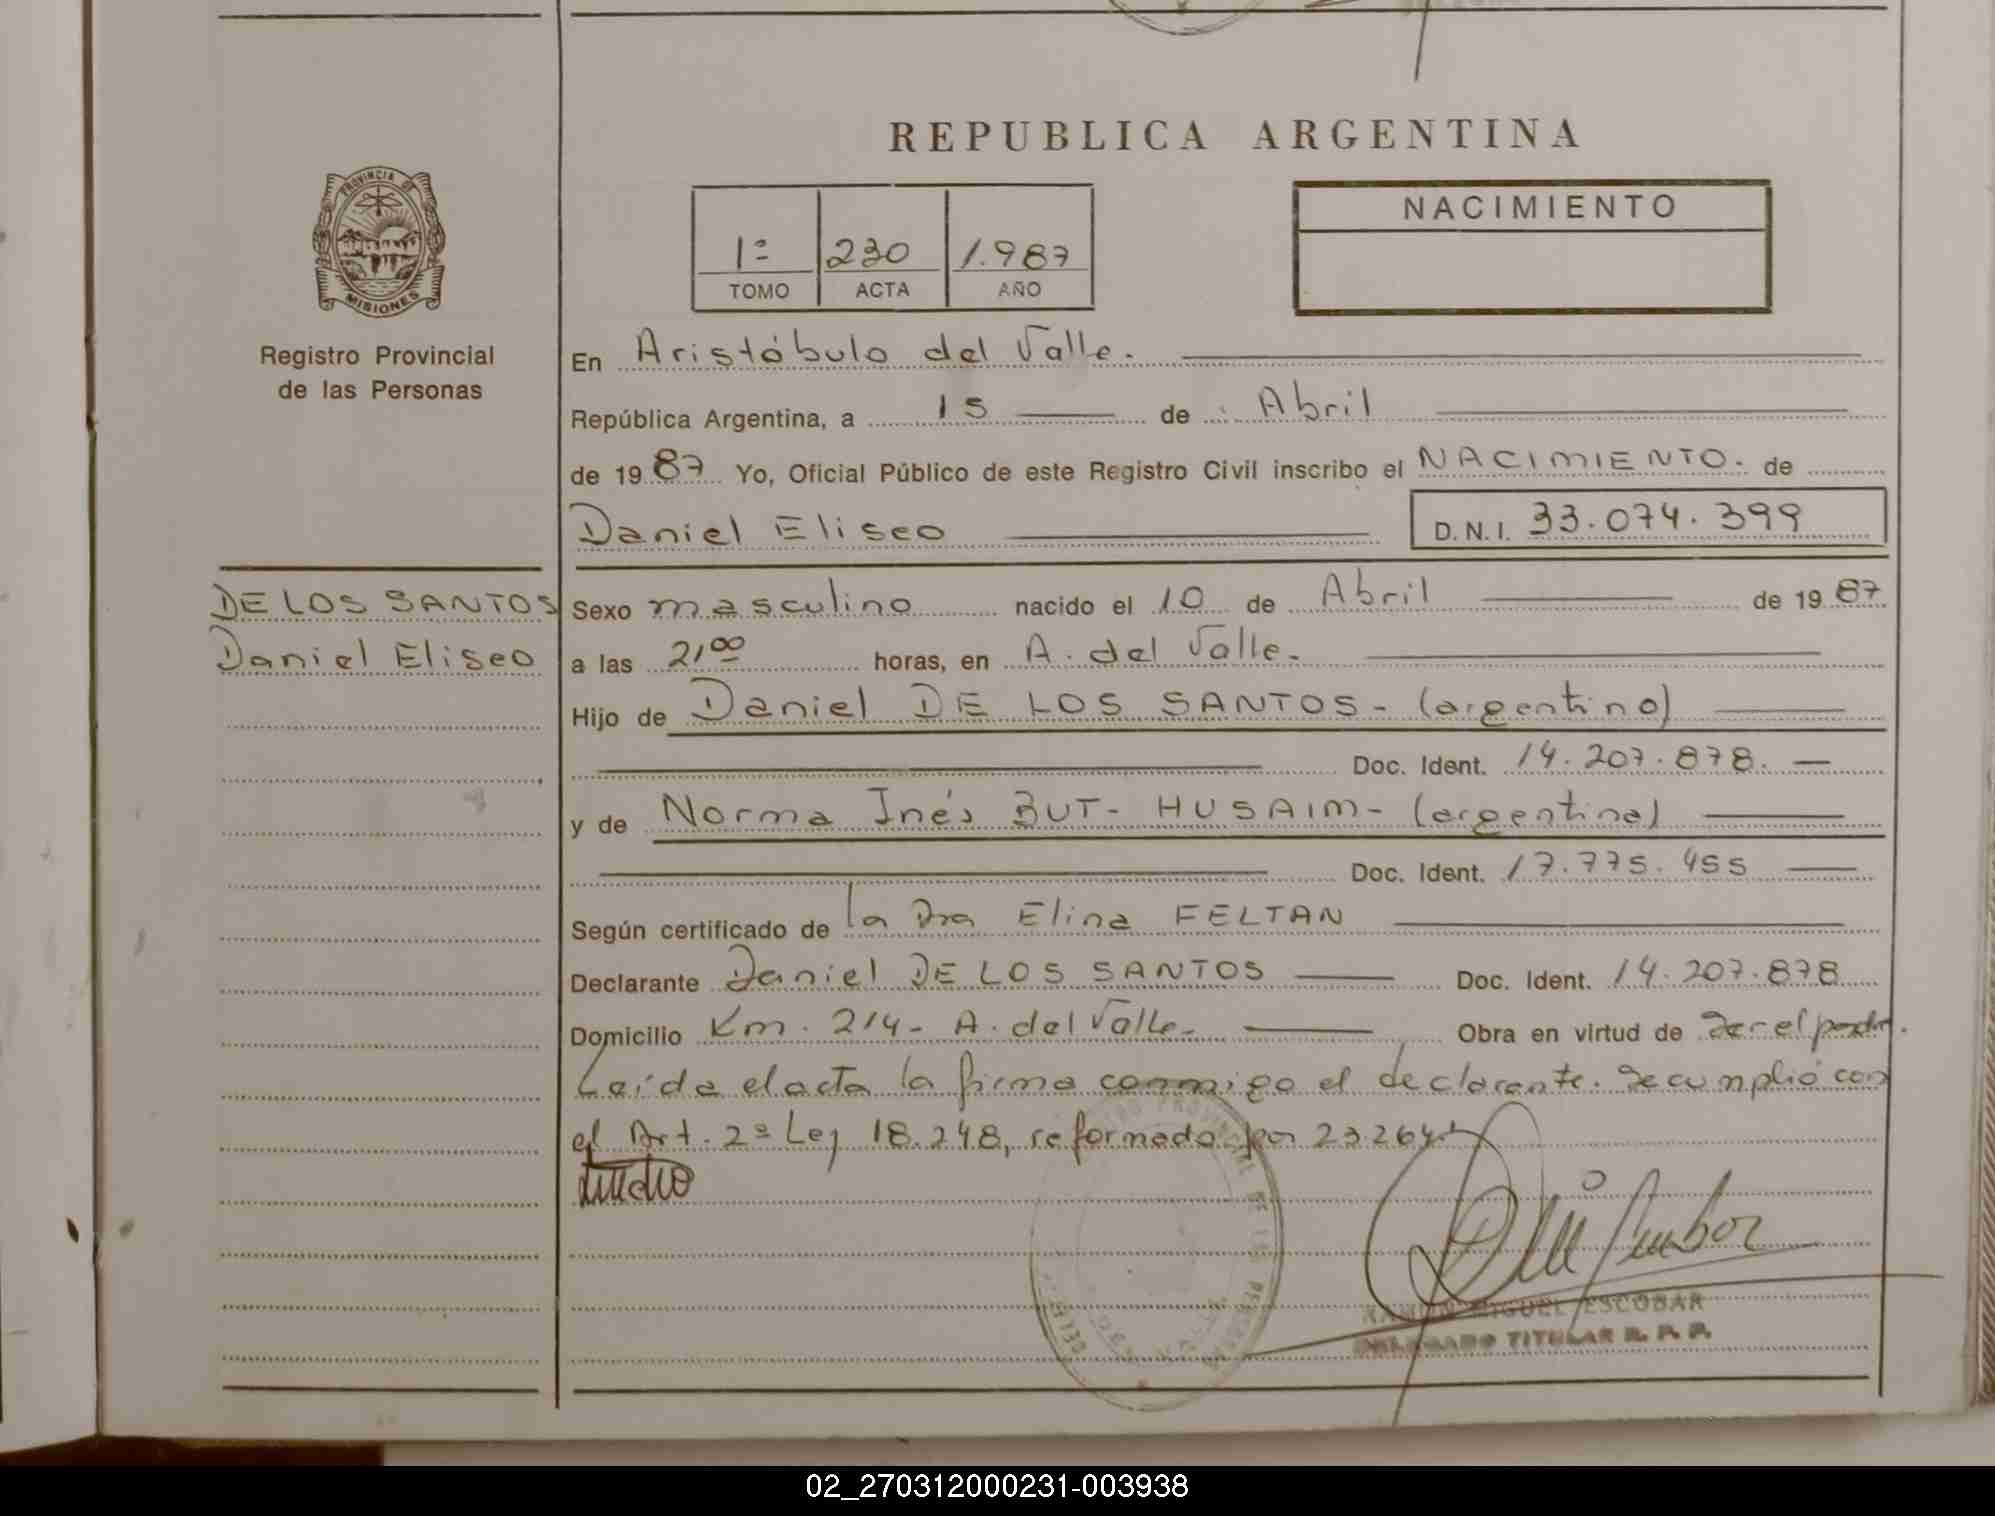 REPUBLICA ARGENTINA
PROVINCIA DE
MISIONES
Registro Provincial
de las Personas
1º 230 1.987
TOMO ACTA AÑO
NACIMIENTO
En Aristóbulo del Valle.
República Argentina, a 15 de Abril
de 1987 Yo, Oficial Público de este Registro Civil inscribo el NACIMIENTO. de
Daniel Eliseo D.N.I. 33.074.399
DE LOS SANTOS
Daniel Eliseo
Sexo masculino nacido el 10 de Abril de 1987
a las 21,00 horas, en A. del Valle.
Hijo de Daniel DE LOS SANTOS - (argentino)
Doc. Ident. 14.207.878.
y de Norma Inés BUT- HUSAIM- (argentina)
Doc. Ident. 17.775.455
Según certificado de la Dra Elina FELTAN
Declarante Daniel DE LOS SANTOS Doc. Ident. 14.207.878
Domicilio Km. 214- A. del Valle- Obra en virtud de ser el padre.
Leída el acta la firma conmigo el declarante. Se cumplió con
el Art. 2º Ley 18.248, reformado por 23.264.
RAMON MIGUEL ESCOBAR
DELEGADO TITULAR R. P. P.
REGISTRO PROVINCIAL DE LAS PERSONAS
02_270312000231-003938